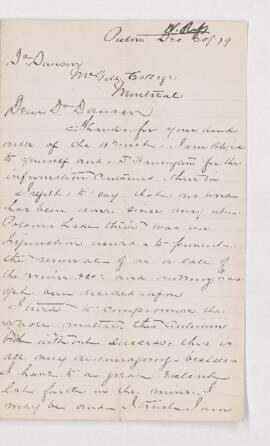 W. Ross
Pictou Dec 20/79
Dr Dawson
McGill College
Montreal
Dear Dr Dawson
Thanks for your kind
note of the 18th inst. I am obliged
to yourself and Dr Harrington for the
information contained therein
I regret to say that no work
has been done since my
was an
Injunction issued to prevent
the removal of or sale of
the mine, &c. and nothing has
yet been decided upon
I tried to compromise the
whole matter this Autumn
but without success; this is
all very discouraging - besides
I have to a great extent
lost faith in the mine. I
may be and I trust I am